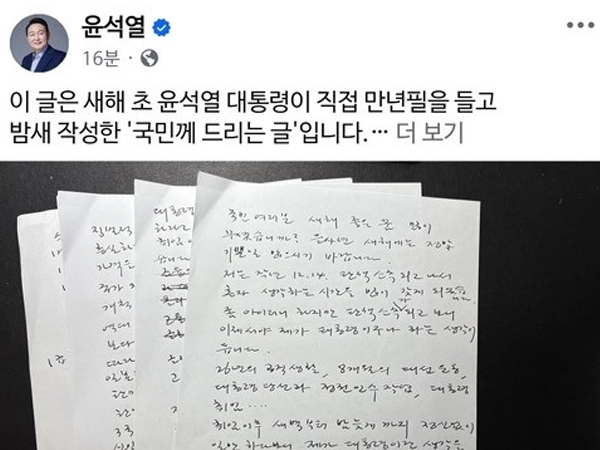 윤석열
16분 ·
이 글은 새해 초 윤석열 대통령이 직접 만년필을 들고
밤새 작성한 '국민께 드리는 글'입니다.… 더 보기
국민 여러분 새해 좋은 꿈 많이
꾸셨습니까? 을사년 새해에는 정말
기쁜일 많으시기 바랍니다.
저는 작년 12.14. 탄핵소추 되고나서
혼자 생각하는 시간을 많이 갖게 되었습니다.
좀 아이러니 하지만 탄핵소추가 되고 보니
이제서야 제가 대통령이구나 하는 생각이
듭니다.
26년의 공직생활, 8개월의 대선 운동,
대통령 당선과 정권인수 작업, 대통령
취임....
취임이후 새벽부터 밤늦게까지 정신없이
일만 하다보니 제가 대통령이란 생각을